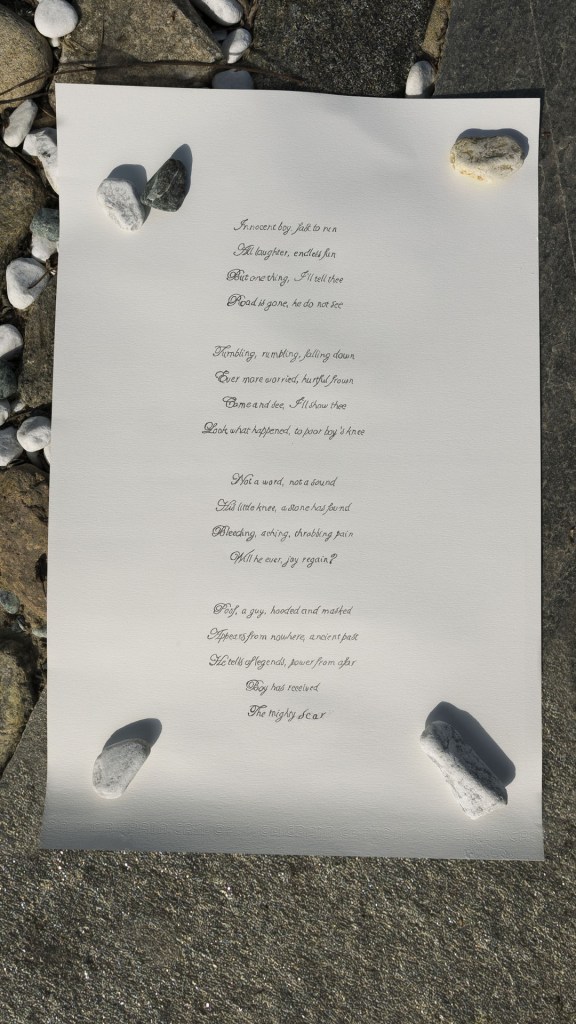 Innocent boy, fast to run
All laughter, endless fun
But one thing, I'll tell thee
Road is gone, he do not see
Tumbling, rumbling, falling down
Ever more worried, hurtful frown
Come and see, I'll show thee
Look what happened, to poor boy's knee
Not a word, not a sound
His little knee, a stone has found
Bleeding, aching, throbbing pain
Will he ever, joy regain?
Poof, a guy, hooded and masked
Appears from nowhere, ancient past
He tells of legends, power from afar
Boy has received
The mighty Scar